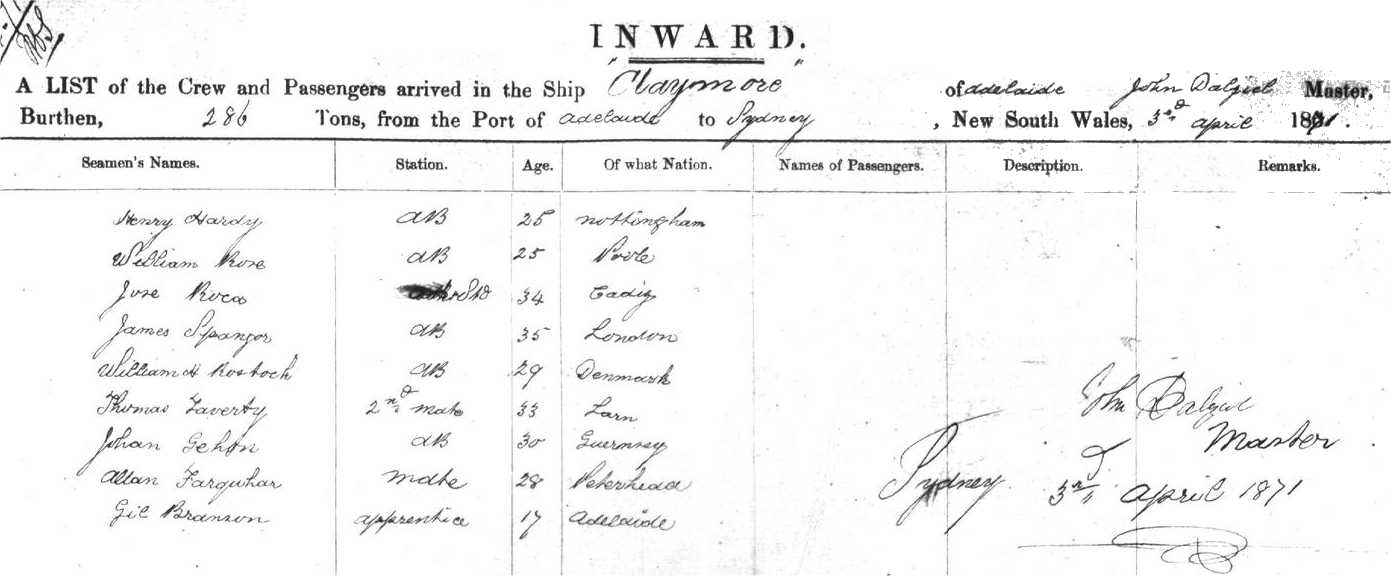 INWARD.
A LIST of the Crew and Passengers arrived in the Ship "Claymore" of Adelaide John Dalziel Master,
Burthen, 286 Tons, from the Port of Adelaide to Sydney, New South Wales, 3rd April 1871.
Seamen's Names. Station. Age. Of what Nation. Names of Passengers. Description. Remarks.
Henry Hardy AB 25 Nottingham
William Rose AB 25 Poole
Jose Roca Std 34 Cadiz
James Spangor AB 35 London
William H Rostock AB 29 Denmark
Thomas Laverty 2nd Mate 33 Larn
Johan Gehan AB 30 Guernsey
Allan Farquhar Mate 28 Peterhead
Gil Branson Apprentice 17 Adelaide
John Dalziel
Master
Sydney 3rd April 1871